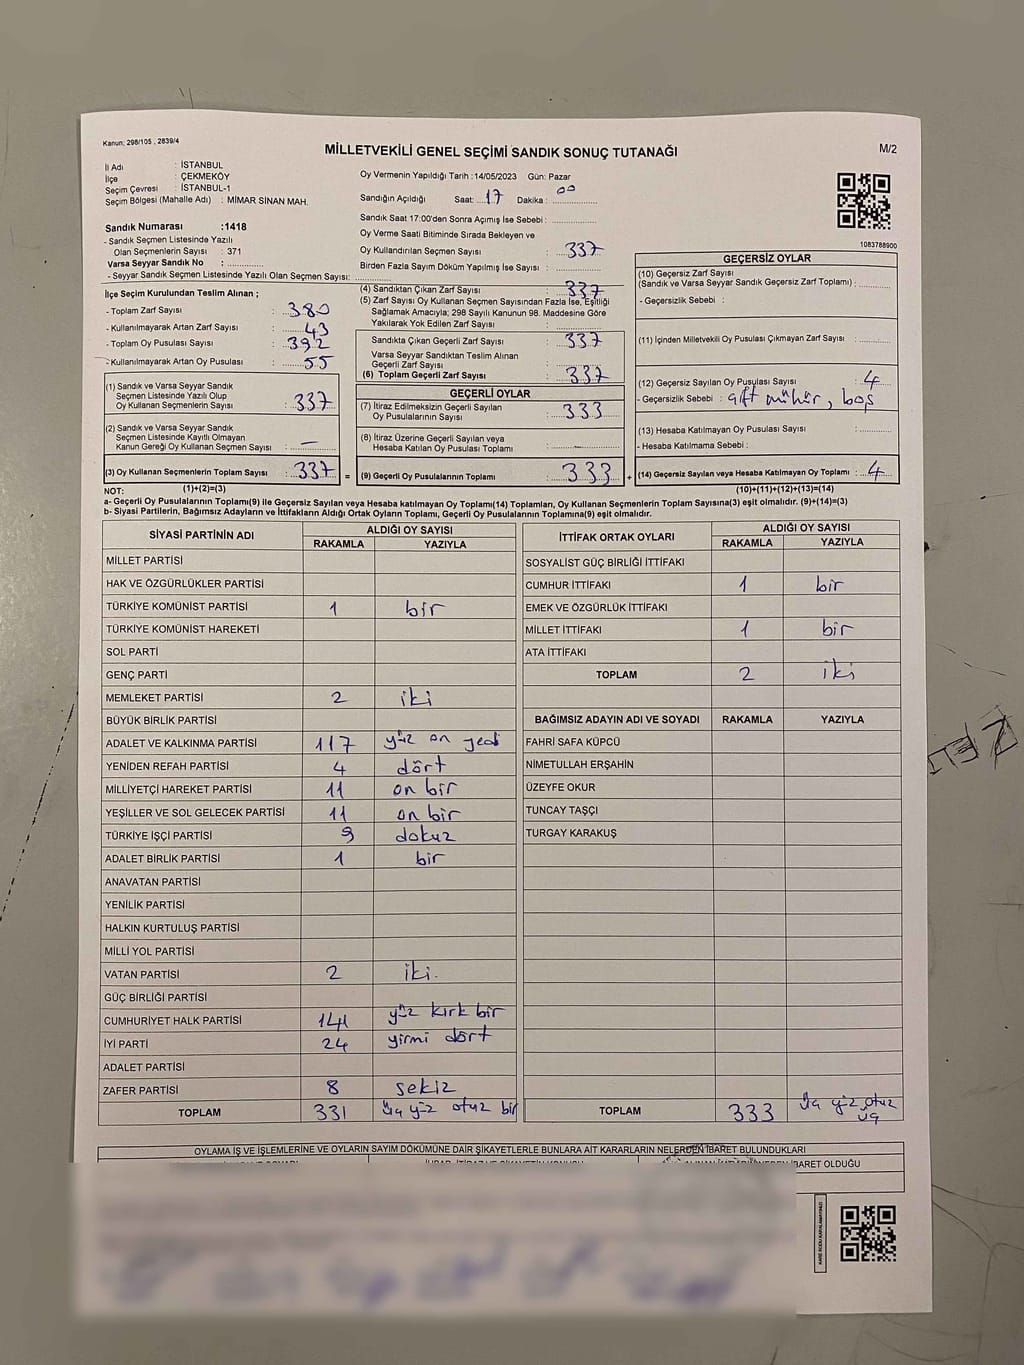 Kanun; 298/105 , 2839/4
MİLLETVEKİLİ GENEL SEÇİMİ SANDIK SONUÇ TUTANAĞI
M/2
İl Adı : İSTANBUL
İlçe : ÇEKMEKÖY
Seçim Çevresi : İSTANBUL-1
Seçim Bölgesi (Mahalle Adı) : MİMAR SİNAN MAH.
Sandık Numarası :1418
- Sandık Seçmen Listesinde Yazılı
Olan Seçmenlerin Sayısı : 371
Varsa Seyyar Sandık No :
- Seyyar Sandık Seçmen Listesinde Yazılı Olan Seçmen Sayısı:
Oy Vermenin Yapıldığı Tarih :14/05/2023 Gün: Pazar
Sandığın Açıldığı Saat: 17 Dakika : 00
Sandık Saat 17:00'den Sonra Açımış İse Sebebi :
Oy Verme Saati Bitiminde Sırada Bekleyen ve
Oy Kullandırılan Seçmen Sayısı : 337
Birden Fazla Sayım Döküm Yapılmış İse Sayısı :
1083788900
İlçe Seçim Kurulundan Teslim Alınan ;
- Toplam Zarf Sayısı : 380
- Kullanılmayarak Artan Zarf Sayısı : 43
- Toplam Oy Pusulası Sayısı : 392
- Kullanılmayarak Artan Oy Pusulası : 55
(1) Sandık ve Varsa Seyyar Sandık
Seçmen Listesinde Yazılı Olup
Oy Kullanan Seçmenlerin Sayısı : 337
(2) Sandık ve Varsa Seyyar Sandık
Seçmen Listesinde Kayıtlı Olmayan
Kanun Gereği Oy Kullanan Seçmen Sayısı : —
(3) Oy Kullanan Seçmenlerin Toplam Sayısı : 337 =
(4) Sandıktan Çıkan Zarf Sayısı : 337
(5) Zarf Sayısı Oy Kullanan Seçmen Sayısından Fazla İse, Eşitliği
Sağlamak Amacıyla; 298 Sayılı Kanunun 98. Maddesine Göre
Yakılarak Yok Edilen Zarf Sayısı :
Sandıkta Çıkan Geçerli Zarf Sayısı : 337
Varsa Seyyar Sandıktan Teslim Alınan
Geçerli Zarf Sayısı :
(6) Toplam Geçerli Zarf Sayısı : 337
GEÇERLİ OYLAR
(7) İtiraz Edilmeksizin Geçerli Sayılan
Oy Pusulalarının Sayısı : 333
(8) İtiraz Üzerine Geçerli Sayılan veya
Hesaba Katılan Oy Pusulası Toplamı :
(9) Geçerli Oy Pusulalarının Toplamı : 333 +
GEÇERSİZ OYLAR
(10) Geçersiz Zarf Sayısı
(Sandık ve Varsa Seyyar Sandık Geçersiz Zarf Toplamı) :
- Geçersizlik Sebebi :
(11) İçinden Milletvekili Oy Pusulası Çıkmayan Zarf Sayısı :
(12) Geçersiz Sayılan Oy Pusulası Sayısı : 4
- Geçersizlik Sebebi : çift mühür, boş
(13) Hesaba Katılmayan Oy Pusulası Sayısı :
- Hesaba Katılmama Sebebi :
(14) Geçersiz Sayılan veya Hesaba Katılmayan Oy Toplamı : 4
NOT: (1)+(2)=(3) (10)+(11)+(12)+(13)=(14)
a- Geçerli Oy Pusulalarının Toplamı(9) ile Geçersiz Sayılan veya Hesaba katılmayan Oy Toplamı(14) Toplamları, Oy Kullanan Seçmenlerin Toplam Sayısına(3) eşit olmalıdır. (9)+(14)=(3)
b- Siyasi Partilerin, Bağımsız Adayların ve İttifakların Aldığı Ortak Oyların Toplamı, Geçerli Oy Pusulalarının Toplamına(9) eşit olmalıdır.
SİYASİ PARTİNİN ADI ALDIĞI OY SAYISI
RAKAMLA YAZIYLA
MİLLET PARTİSİ
HAK VE ÖZGÜRLÜKLER PARTİSİ
TÜRKİYE KOMÜNİST PARTİSİ 1 bir
TÜRKİYE KOMÜNİST HAREKETİ
SOL PARTİ
GENÇ PARTİ
MEMLEKET PARTİSİ 2 iki
BÜYÜK BİRLİK PARTİSİ
ADALET VE KALKINMA PARTİSİ 117 yüz on yedi
YENİDEN REFAH PARTİSİ 4 dört
MİLLİYETÇİ HAREKET PARTİSİ 11 on bir
YEŞİLLER VE SOL GELECEK PARTİSİ 11 on bir
TÜRKİYE İŞÇİ PARTİSİ 9 dokuz
ADALET BİRLİK PARTİSİ 1 bir
ANAVATAN PARTİSİ
YENİLİK PARTİSİ
HALKIN KURTULUŞ PARTİSİ
MİLLİ YOL PARTİSİ
VATAN PARTİSİ 2 iki.
GÜÇ BİRLİĞİ PARTİSİ
CUMHURİYET HALK PARTİSİ 141 yüz kırk bir
İYİ PARTİ 24 yirmi dört
ADALET PARTİSİ
ZAFER PARTİSİ 8 sekiz
TOPLAM 331 üç yüz otuz bir
İTTİFAK ORTAK OYLARI ALDIĞI OY SAYISI
RAKAMLA YAZIYLA
SOSYALİST GÜÇ BİRLİĞİ İTTİFAKI
CUMHUR İTTİFAKI 1 bir
EMEK VE ÖZGÜRLÜK İTTİFAKI
MİLLET İTTİFAKI 1 bir
ATA İTTİFAKI
TOPLAM 2 iki
BAĞIMSIZ ADAYIN ADI VE SOYADI RAKAMLA YAZIYLA
FAHRİ SAFA KÜPCÜ
NİMETULLAH ERŞAHİN
ÜZEYFE OKUR
TUNCAY TAŞÇI
TURGAY KARAKUŞ
TOPLAM 333 üç yüz otuz
üç
OYLAMA İŞ VE İŞLEMLERİNE VE OYLARIN SAYIM DÖKÜMÜNE DAİR ŞİKAYETLERLE BUNLARA AİT KARARLARIN NELERDEN İBARET BULUNDUKLARI
İBARET OLDUĞU